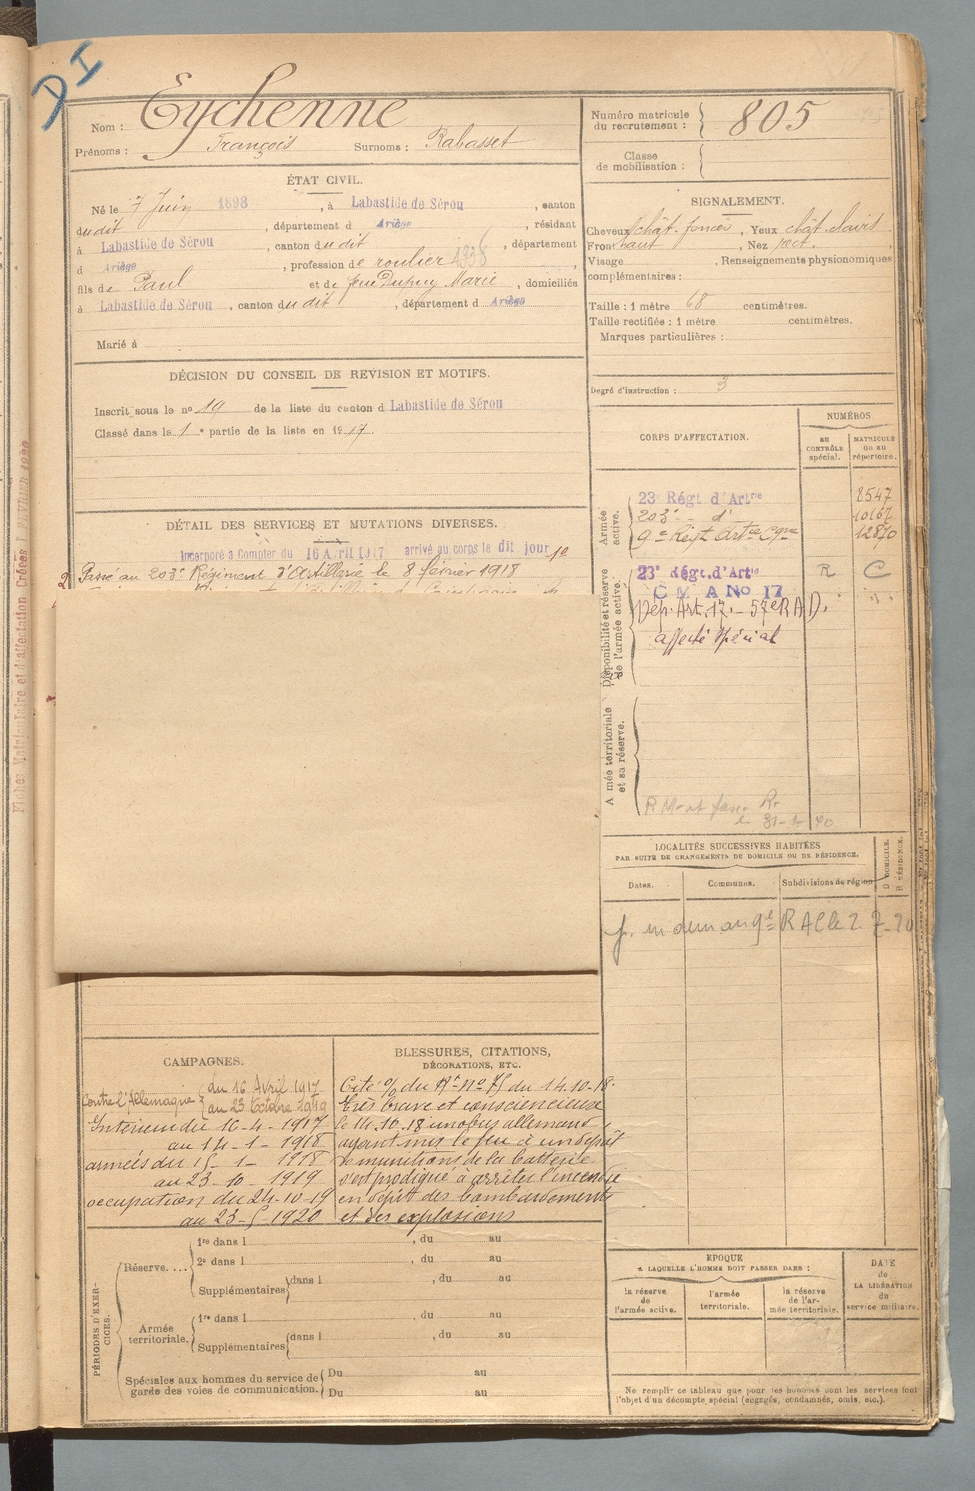 DI
Nom : Eychenne
Prénoms : François Surnoms : Rabasset
Numéro matricule
du recrutement : 805
Classe
de mobilisation :
ÉTAT CIVIL.
Né le 7 Juin 1898, à Labastide de Sérou, canton
dudit, département d Ariège, résidant
à Labastide de Sérou, canton dudit, département
d Ariège, profession de roulier
fils de Paul et de Marie, domiciliés
à Labastide de Sérou, canton dudit, département d Ariège
Marié à
SIGNALEMENT.
Cheveux chât. foncés, Yeux chât. clairs
Front haut, Nez rect.
Visage , Renseignements physionomiques
complémentaires :
Taille : 1 mètre 68 centimètres.
Taille rectifiée : 1 mètre centimètres.
Marques particulières :
Degré d'instruction : 3
DÉCISION DU CONSEIL DE REVISION ET MOTIFS.
Inscrit sous le no 19 de la liste du canton d Labastide de Sérou
Classé dans la 1e partie de la liste en 1917.
DÉTAIL DES SERVICES ET MUTATIONS DIVERSES.
Incorporé à compter du 16 Avril 1917 arrivé au corps le dit jour
Passé au 203e Régiment d'Artillerie le 8 février 1918
CORPS D'AFFECTATION.
NUMÉROS
au
CONTRÔLE
spécial.
MATRICULE
ou au
répertoire.
Armée
active.
23e Régt d'Artrie 8547
203e - d° 10167
9e Régt Artie Cgne 12870
Disponibilité et réserve
de l'armée active.
23e Régt. d'Artie R C
C M A No 17
Dép. Art. 17. - 57e R A D.
affecté spécial
A mée territoriale
et sa réserve.
31-1-40
LOCALITÉS SUCCESSIVES HABITÉES
PAR SUITE DE CHANGEMENTS DE DOMICILE OU DE RÉSIDENCE.
Dates.
Communes.
Subdivisions de région
D DOMICILE.
R RÉSIDENCE.
CAMPAGNES.
Contre l'Allemagne { du 16 Avril 1917
au 23 Octobre 1919
Intérieur du 16-4-1917
au 14-1-1918
armées du 15-1-1918
au 23-10-1919
occupation du 24-10-19
au 23-5-1920
BLESSURES, CITATIONS,
DÉCORATIONS, ETC.
Cité o/ du Rt no 75 du 14.10.18.
Très brave et consciencieux
le 14.10.18 un obus allemand
ayant mis le feu à un dépôt
de munitions de la batterie
s'est prodigué à arrêter l'incendie
en dépit des bombardements
et des explosions
PÉRIODES D'EXER-
CICES.
Réserve....
1re dans l , du au
2e dans l , du au
Supplémentaires {dans l , du au
Armée
territoriale.
1re dans l , du au
Supplémentaires {dans l , du au
Spéciales aux hommes du service de
garde des voies de communication.
Du au
Du au
EPOQUE
A LAQUELLE L'HOMME DOIT PASSER DANS :
la réserve
de
l'armée active.
l'armée
territoriale.
la réserve
de l'ar-
mée territoriale.
DATE
de
LA LIBÉRATION
du
service militaire.
Ne remplir ce tableau que pour les hommes dont les services font
l'objet d'un décompte spécial (engagés, condamnés, omis, etc.).